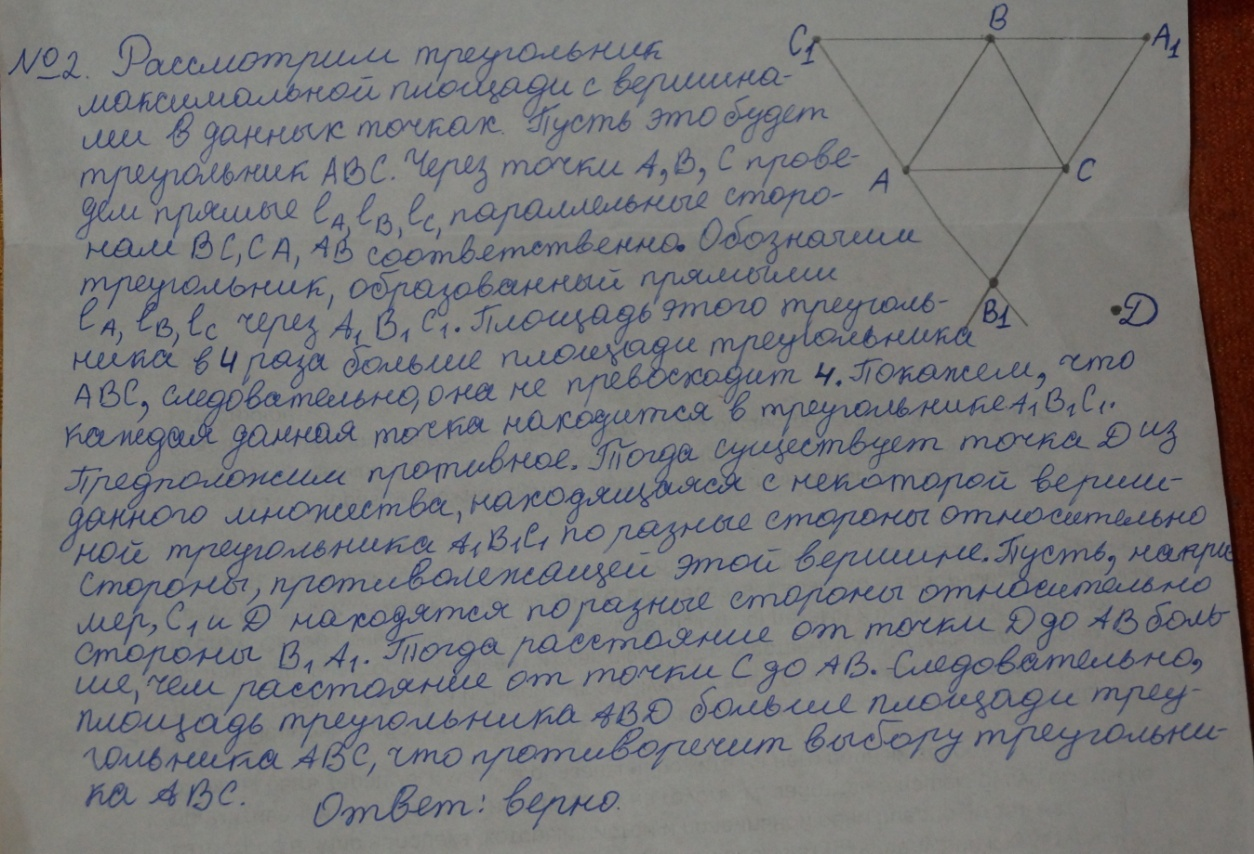 №2. Рассмотрим треугольник
максимальной площади с вершина-
ми в данных точках. Пусть это будет
треугольник ABC. Через точки A, B, C прове-
дем прямые lA, lB, lC, параллельные сторо-
нам BC, CA, AB соответственно. Обозначим
треугольник, образованный прямыми
lA, lB, lC через A1 B1 C1. Площадь этого треуголь-
ника в 4 раза больше площади треугольника
ABC, следовательно, она не превосходит 4. Покажем, что
каждая данная точка находится в треугольнике A1B1C1.
Предположим противное. Тогда существует точка D из
данного множества, находящаяся с некоторой верши-
ной треугольника A1B1C1 по разные стороны относительно
стороны, противолежащей этой вершине. Пусть, напри
мер, C1 и D находятся по разные стороны относительно
стороны B1 A1. Тогда расстояние от точки D до AB боль
ше, чем расстояние от точки C до AB. Следовательно,
площадь треугольника ABD больше площади треу-
гольника ABC, что противоречит выбору треугольни-
ка ABC.
Ответ: верно.
C1
B
A1
A
C
B1
D